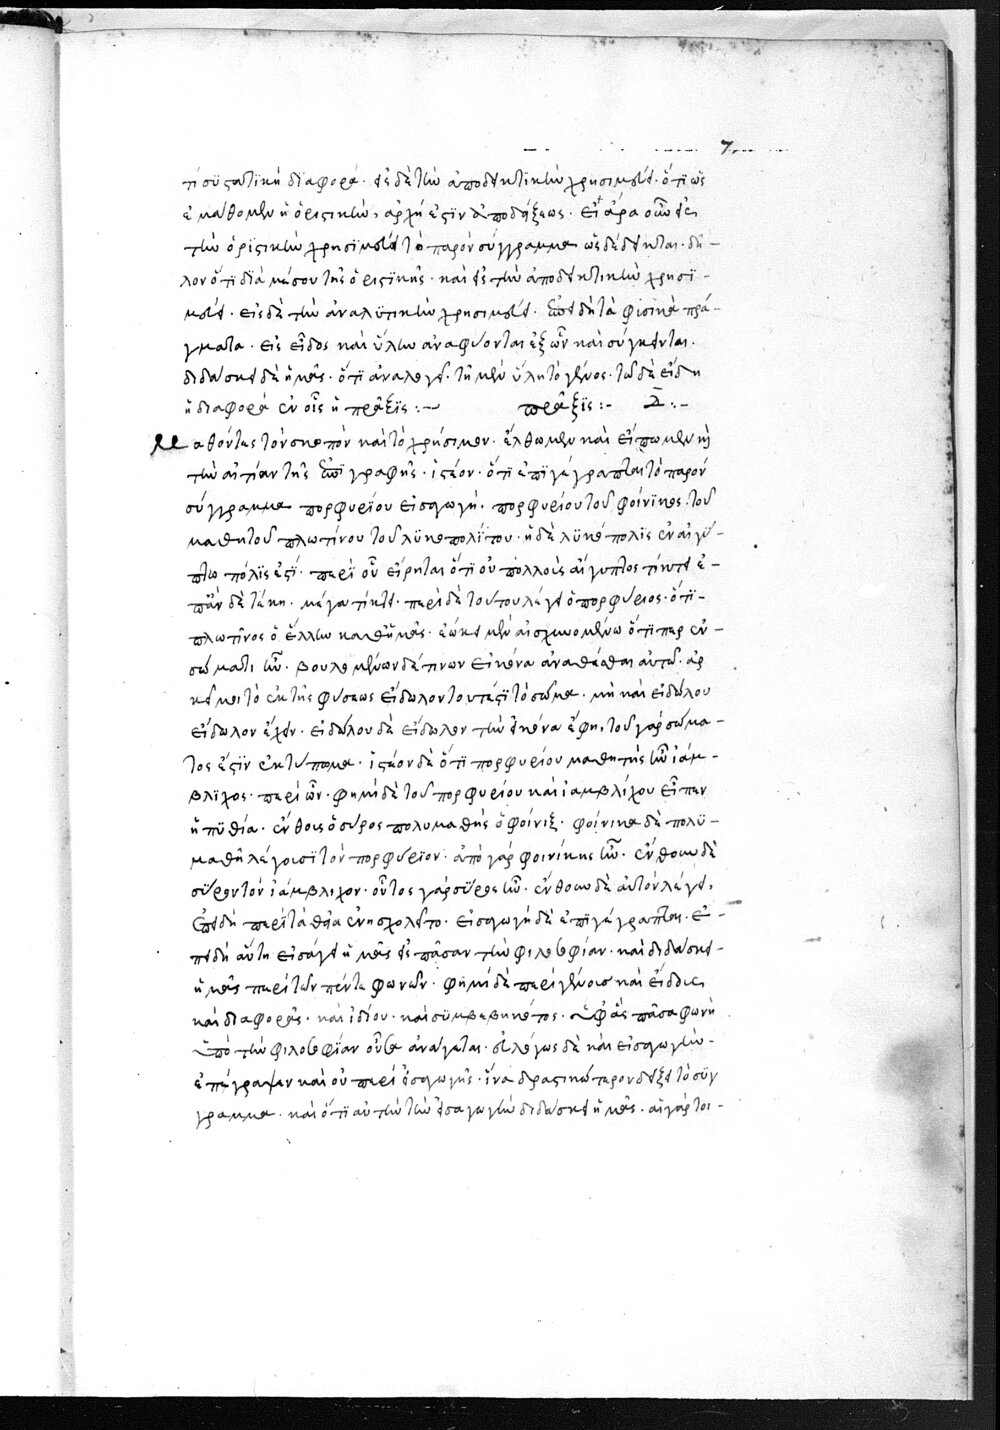 7
τί συστατικὴ διαφορά. εἰς δὲ τὴν ἀποδεικτικὴν χρησιμεύει. ὅτι ὡς
ἐμάθομεν ἡ ὁριστικὴ, ἀρχή ἐστϊν ἀποδείξεως. εἰ ἄρα οὖν εἰς
τὴν ὁριστικὴν χρησϊμεύει τὸ παρὸν σύγγραμμα ὡς δέδεικται. δῆ-
λον ὅτι διὰ μέσου τῆς ὁριστϊκῆς. καὶ εἰς τὴν ἀποδεικτικὴν χρησϊ-
μεύει. εἰς δὲ τὴν ἀναλϋτικὴν χρησιμεύει. ἐπειδὴ τὰ φυσικὰ πρά-
γματα. εἰς εἶδος καὶ ὕλην ἀναλύονται ἐξ ὧν καὶ σύγκεινται.
διδάσκει δὲ ἡμᾶς. ὅτι ἀναλογεῖ. τῆ μὲν ὕλη τὸ γένος. τῶ δὲ εἴδει
ἡ διαφορά ἐν οἷς ἡ πρᾶξϊς:~ πρᾶξϊς:- λ:-
Μαθόντες τὸν σκοπὸν καὶ τὸ χρήσιμον. ἔλθωμεν καὶ εἴπωμεν κὶ
τὴν αἰτίαν τῆς ἐπϊγραφῆς. ἰστέον. ὅτι ἐπϊγέγραπται τὸ παρὸν
σύγγραμμα πορφυρίου εἰσαγωγή. πορφυρίου τοῦ φοίνϊκος. τοῦ
μαθητοῦ πλωτίνου τοῦ λϋκοπολίτου. ἡ δὲ λϋκόπολϊς ἐν αἰγύ-
πτω πόλϊς ἐστί. περὶ οὗ εἴρηται ὅτι οὐ πολλοὺς αἴγυπτος τίκτει ἐ-
πὰν δὲ τέκη. μέγα τίκτει. περὶ δὲ τούτου λέγει ὁ πορφύριος. ὅτι-
πλωτῖνος ὁ ἕλλην καθ' ἡμᾶς. ἐώκει μὲν αἰσχυνομένω ὅτι περ ἐν
σώματι ἦν. βουλομένων δέ τινων εἰκόνα ἀναθέσθαι αὐτῶ. ἀρ
κεῖ μοι τὸ ἐκ τῆς φύσεως εἴδωλον τουτέστϊ τὸ σῶμα. μὴ καὶ εἰδώλου
εἴδωλον ἔχειν. εἰδώλου δὲ εἴδωλον τὴν εἰκόνα ἔφη, τοῦ γὰρ σώμα-
τος ἐστϊν ἐκτύπωμα. ἰστέον δὲ ὅτι πορφυρίου μαθητὴς ἦν ἰάμ-
βλϊχος. περὶ ὧν. φημὶ δὲ τοῦ πορφυρίου καὶ ἰαμβλίχου εἶπεν
ἡ πϋθία. ἔνθους ὁ σύρος πολυμαθὴς ὁ φοῖνιξ. φοίνικα δὲ πολϋ-
μαθῆ λέγουσϊ τὸν πορφύρϊον. ἀπὸ γὰρ φοινίκης ἦν. ἔνθουν δὲ
σϋρον τὸν ἰάμβλιχον. οὗτος γὰρ σϋρος ἦν. ἔνθουν δὲ αὐτὸν λέγει,
ἐπειδὴ περὶ τὰ θεῖα ἐνησχολεῖτο. εἰσαγωγὴ δὲ ἐπϊγέγραπται. ἐ-
πειδὴ αὕτη εἰσάγει ἡμᾶς εἰς πᾶσαν τὴν φιλοσοφίαν. καὶ διδάσκει
ἡμᾶς περὶ τῶν πέντε φωνῶν. φημὶ δὲ περὶ γένους καὶ εἴδους
καὶ διαφορᾶς. καὶ ἰδίου. καὶ συμβεβηκότος. ὑφ' ἃς πᾶσα φωνὴ
ὑπὸ τὴν φιλοσοφίαν οὖσα ἀνάγεται. εὐλόγως δὲ καὶ εἰσαγωγὴν-
ἐπέγραψεν καὶ οὐ περὶ εἰσαγωγῆς. ἵνα δραστικώτερον δείξει τὸ σύγ
γραμμα. καὶ ὅτι αὐτὴν τὴν εἰσαγωγὴν διδάσκει ἡμᾶς. αἱ γάρ τοι-